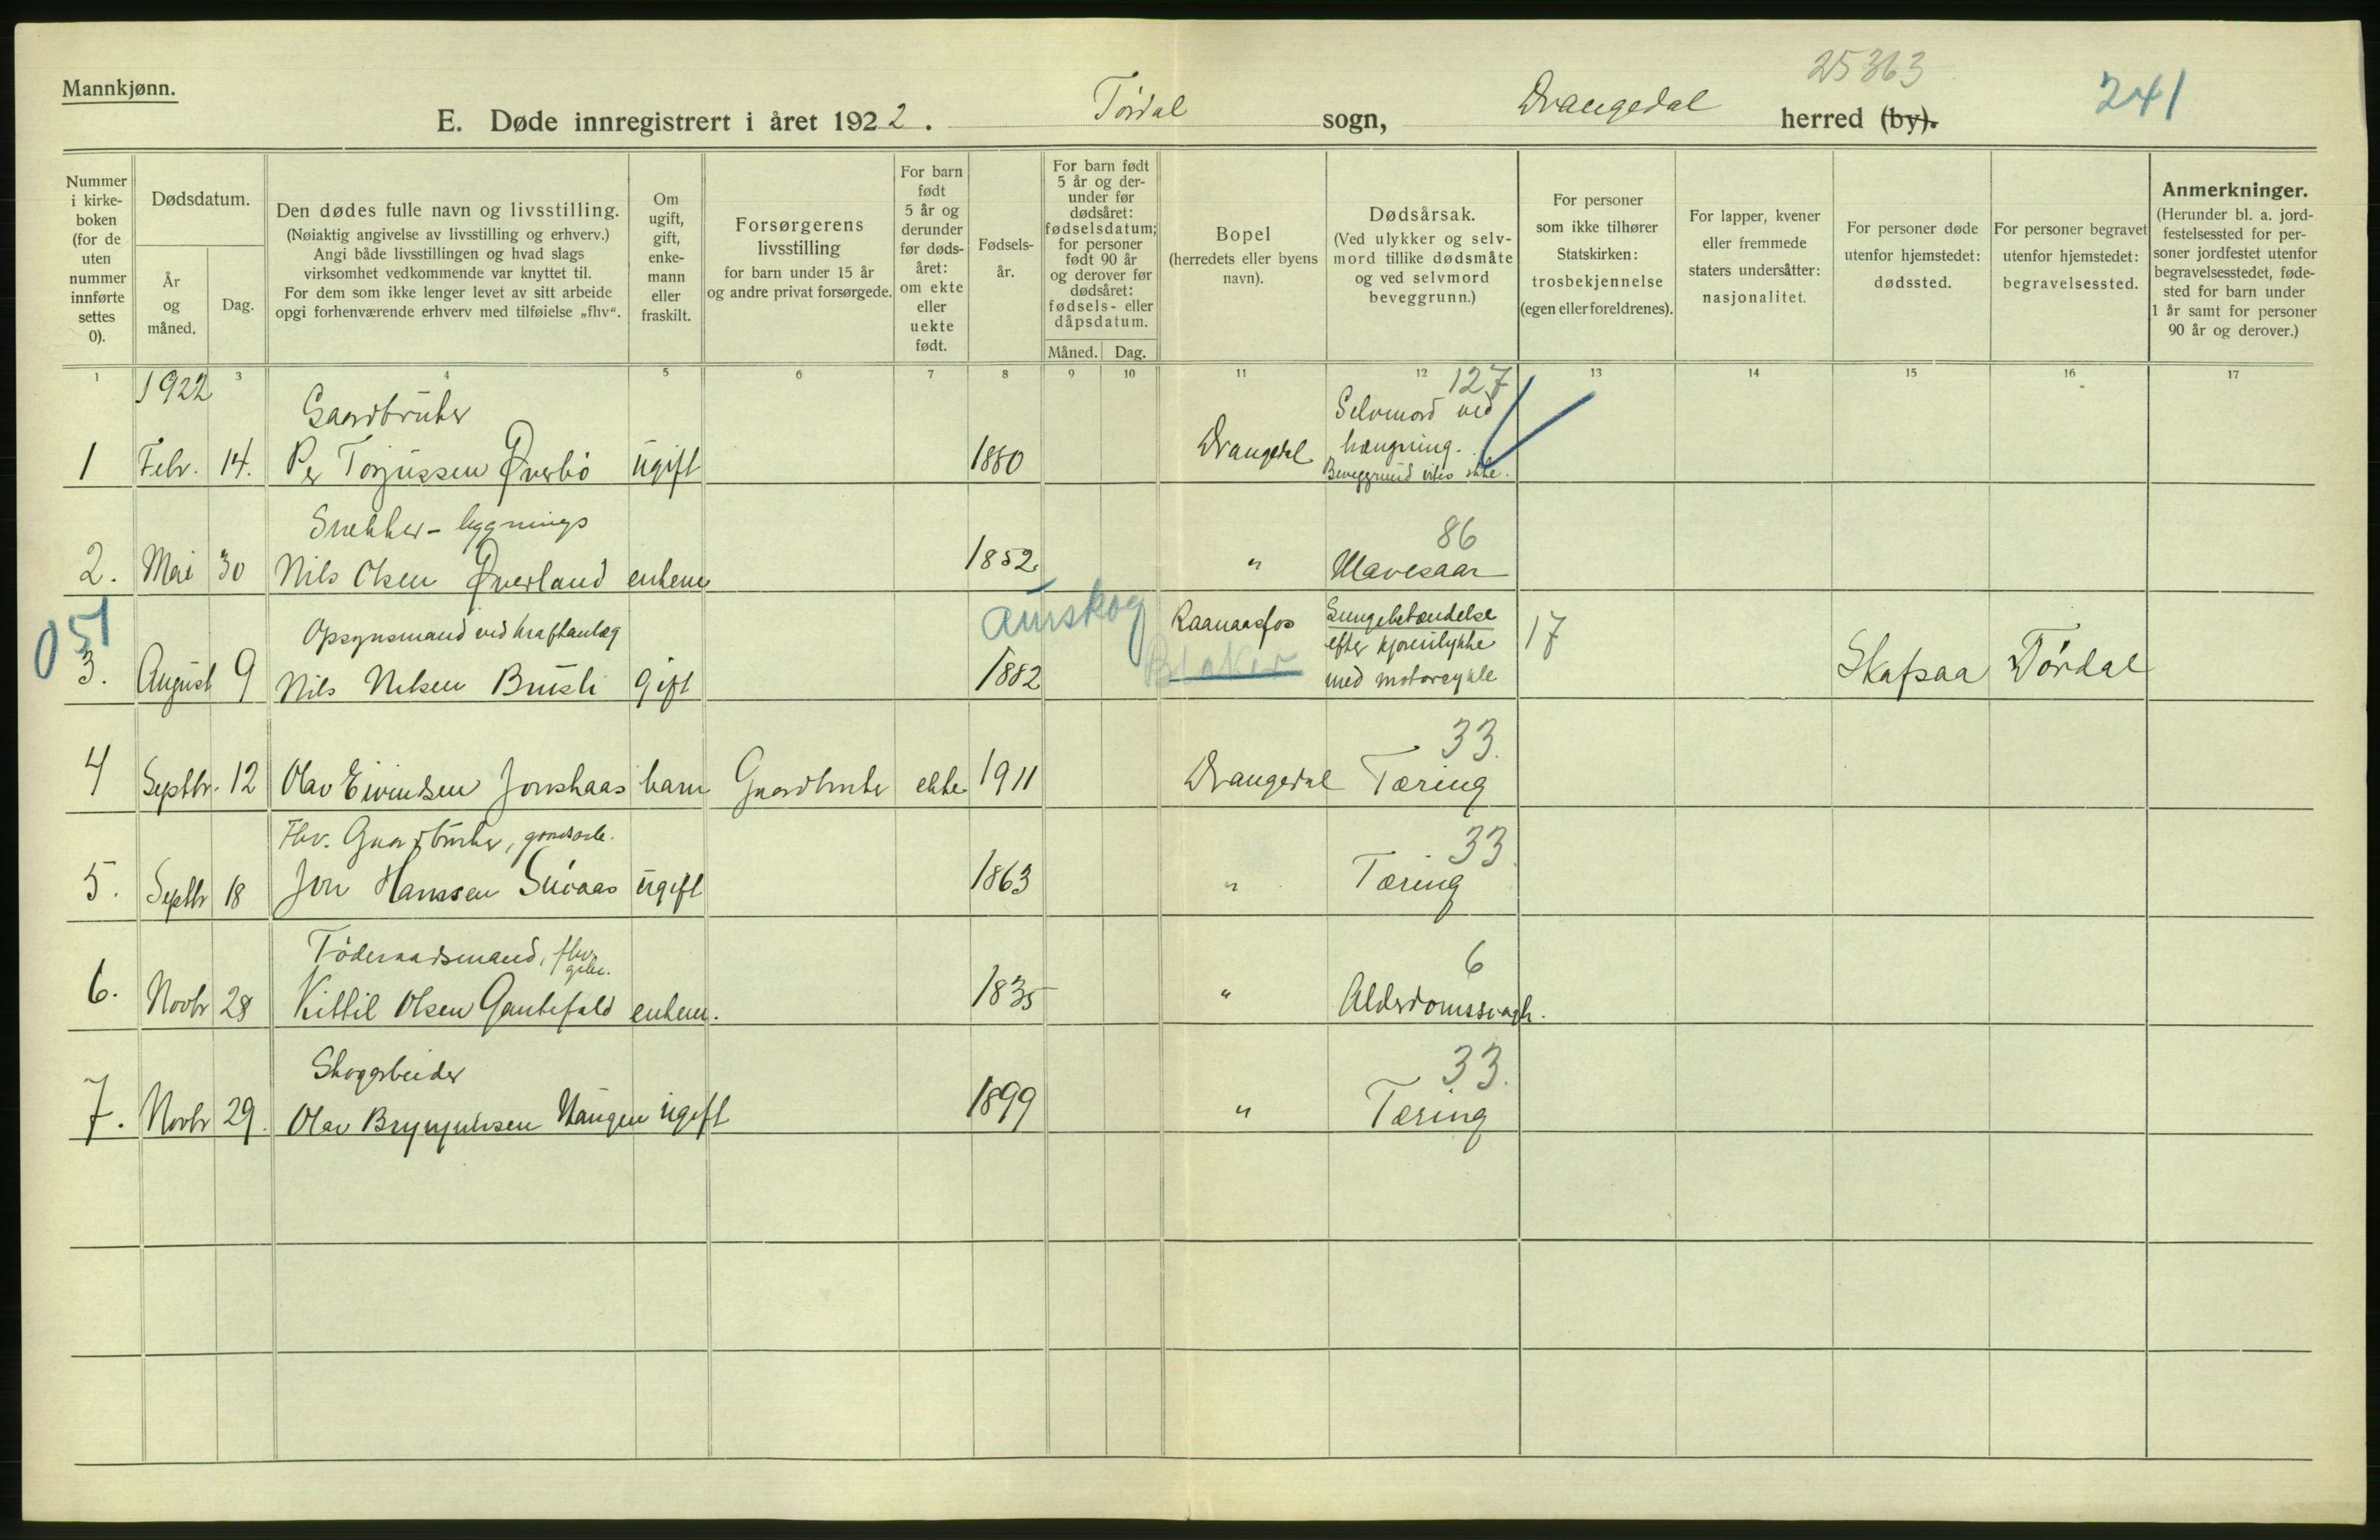 25363
Mannkjønn.
241
E. Døde innregistrert i året 1922. Tørdal sogn, Drangedal herred (by).
Nummer i kirke-boken (for de uten nummer innførte settes 0).
Dødsdatum.
År og måned.
Dag.
Den dødes fulle navn og livsstilling.
(Nøiaktig angivelse av livsstilling og erhverv.)
Angi både livsstillingen og hvad slags
virksomhet vedkommende var knyttet til.
For dem som ikke lenger levet av sitt arbeide
opgi forhenværende erhverv med tilføielse „fhv“.
Om ugift, gift, enke-mann eller fraskilt.
Forsørgerens
livsstilling
for barn under 15 år
og andre privat forsørgede.
For barn født 5 år og derunder før døds-året: om ekte eller uekte født.
Fødsels-år.
For barn født 5 år og der-under før dødsåret: fødselsdatum; for personer født 90 år og derover før dødsåret: fødsels- eller dåpsdatum.
Måned. Dag.
Bopel
(herredets eller byens
navn).
Dødsårsak.
(Ved ulykker og selv-
mord tillike dødsmåte
og ved selvmord
beveggrunn.)
For personer
som ikke tilhører
Statskirken:
trosbekjennelse
(egen eller foreldrenes).
For lapper, kvener
eller fremmede
staters undersåtter:
nasjonalitet.
For personer døde
utenfor hjemstedet:
dødssted.
For personer begravet
utenfor hjemstedet:
begravelsessted.
Anmerkninger.
(Herunder bl. a. jord-
festelsessted for per-
soner jordfestet utenfor
begravelsesstedet, føde-
sted for barn under
1 år samt for personer
90 år og derover.)
1 3 4 5 6 7 8 9 10 11 12 13 14 15 16 17
1922 127
Gaardbruker Selvmord ved
1 Febr. 14. Per Torjussen Øverbö ugift 1880 Drangedal hængning.
Beveggrund vites ikke.
Snekker- bygnings 86
2. Mai 30 Nils Olsen Øverland enkem 1852 " Mavesaar
051 Aurskog
Opsynsmand ved kraftanlæg Raanaasfos Lungebetændelse 17
efter kjøreulykke
3. August 9 Nils Nilsen Brusli gift 1882 Blaker med motorcykle Skafsaa Tørdal
33.
4 Septbr. 12 Olav Eivindsen Jonskaas barn Gaardbruker ekte 1911 Drangedal Tæring
Fhv. Gaardbruker, gaardsarb. 33.
5. Septbr 18 Jon Hanssen ugift 1863 " Tæring
Föderaadsmand, fhv. gbr. 6
6. Novbr 28 Kittil Olsen Gautefald enkem. 1835 " Alderdomssvagh.
Skogarbeider 33.
7. Novbr 29. Olav Brynjulvsen Haugen ugift 1899 " Tæring